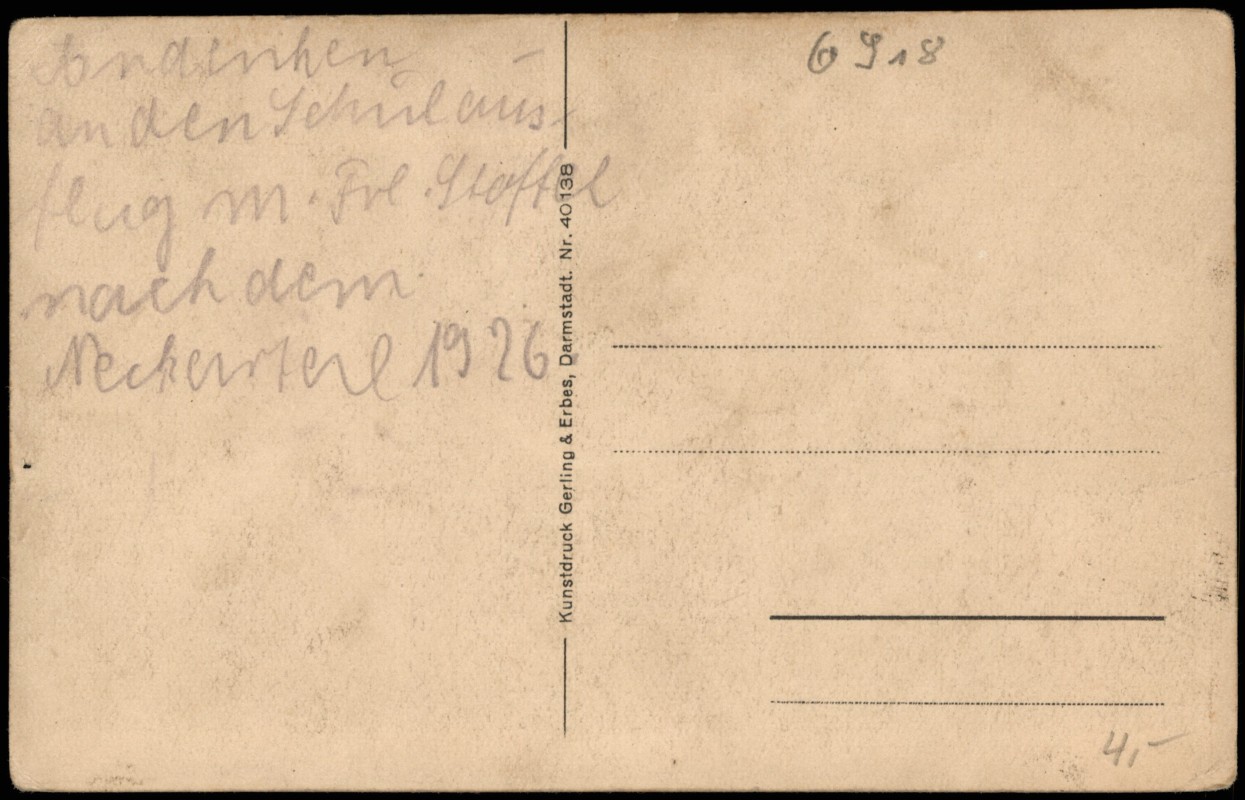 Andenken
an den Schulaus-
flug m. Frl. Stoffel
nach dem
Neckarteil 1926.
Kunstdruck Gerling & Erbes, Darmstadt. Nr. 40138
6918
4,-